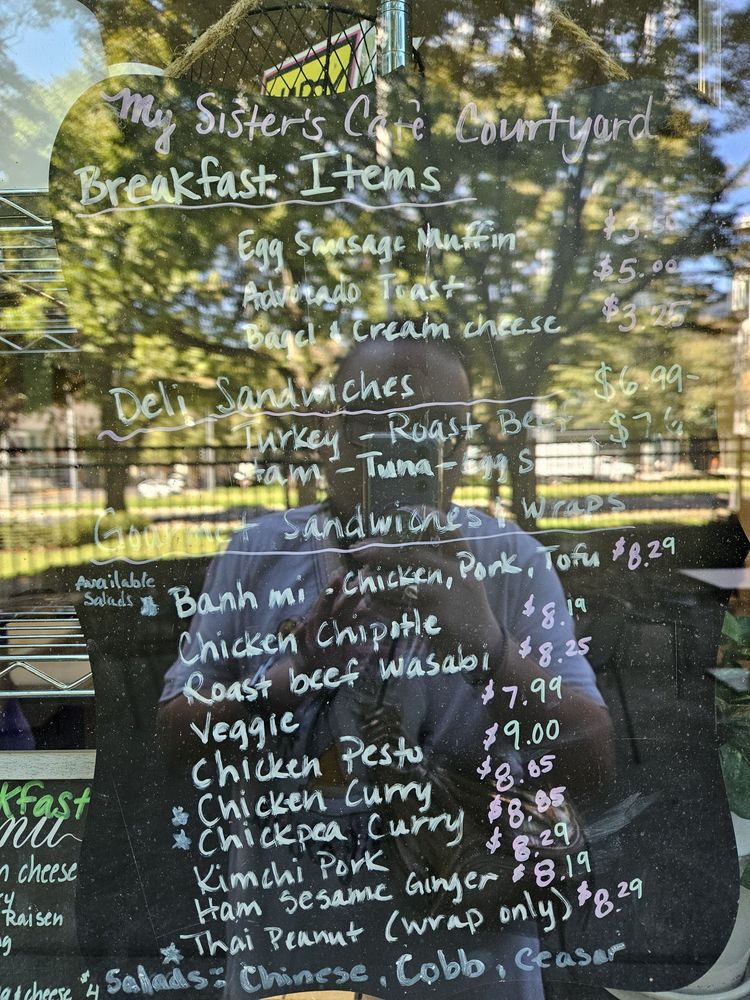 My Sister's Cafe Courtyard
Breakfast Items
Egg Sausage Muffin
Advocado Toast $5.00
Bagel & Cream cheese $3.25
Deli Sandwiches $6.99-
Turkey - Roast Beef
Ham - Tuna - Eggs
Gourmet Sandwiches & Wraps
Available
Salads
Banh mi - Chicken, Pork, Tofu $8.29
Chicken Chipotle $8.19
Roast beef wasabi $8.25
Veggie $7.99
Chicken Pesto $9.00
Chicken Curry $8.85
Chickpea Curry $8.85
Kimchi Pork $8.29
Ham Sesame Ginger $8.19
Thai Peanut (wrap only) $8.29
Salads: Chinese, Cobb, Ceasar
kfast
nu
cheese
Raisen
& cheese $4